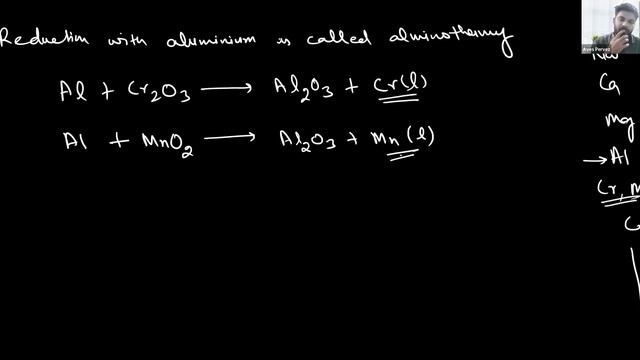 Reduction with aluminium is called alminothermy
Al + Cr2O3 → Al2O3 + Cr(l)
Al + MnO2 → Al2O3 + Mn(l)
Ca
Mg
→ Al
Cr, M